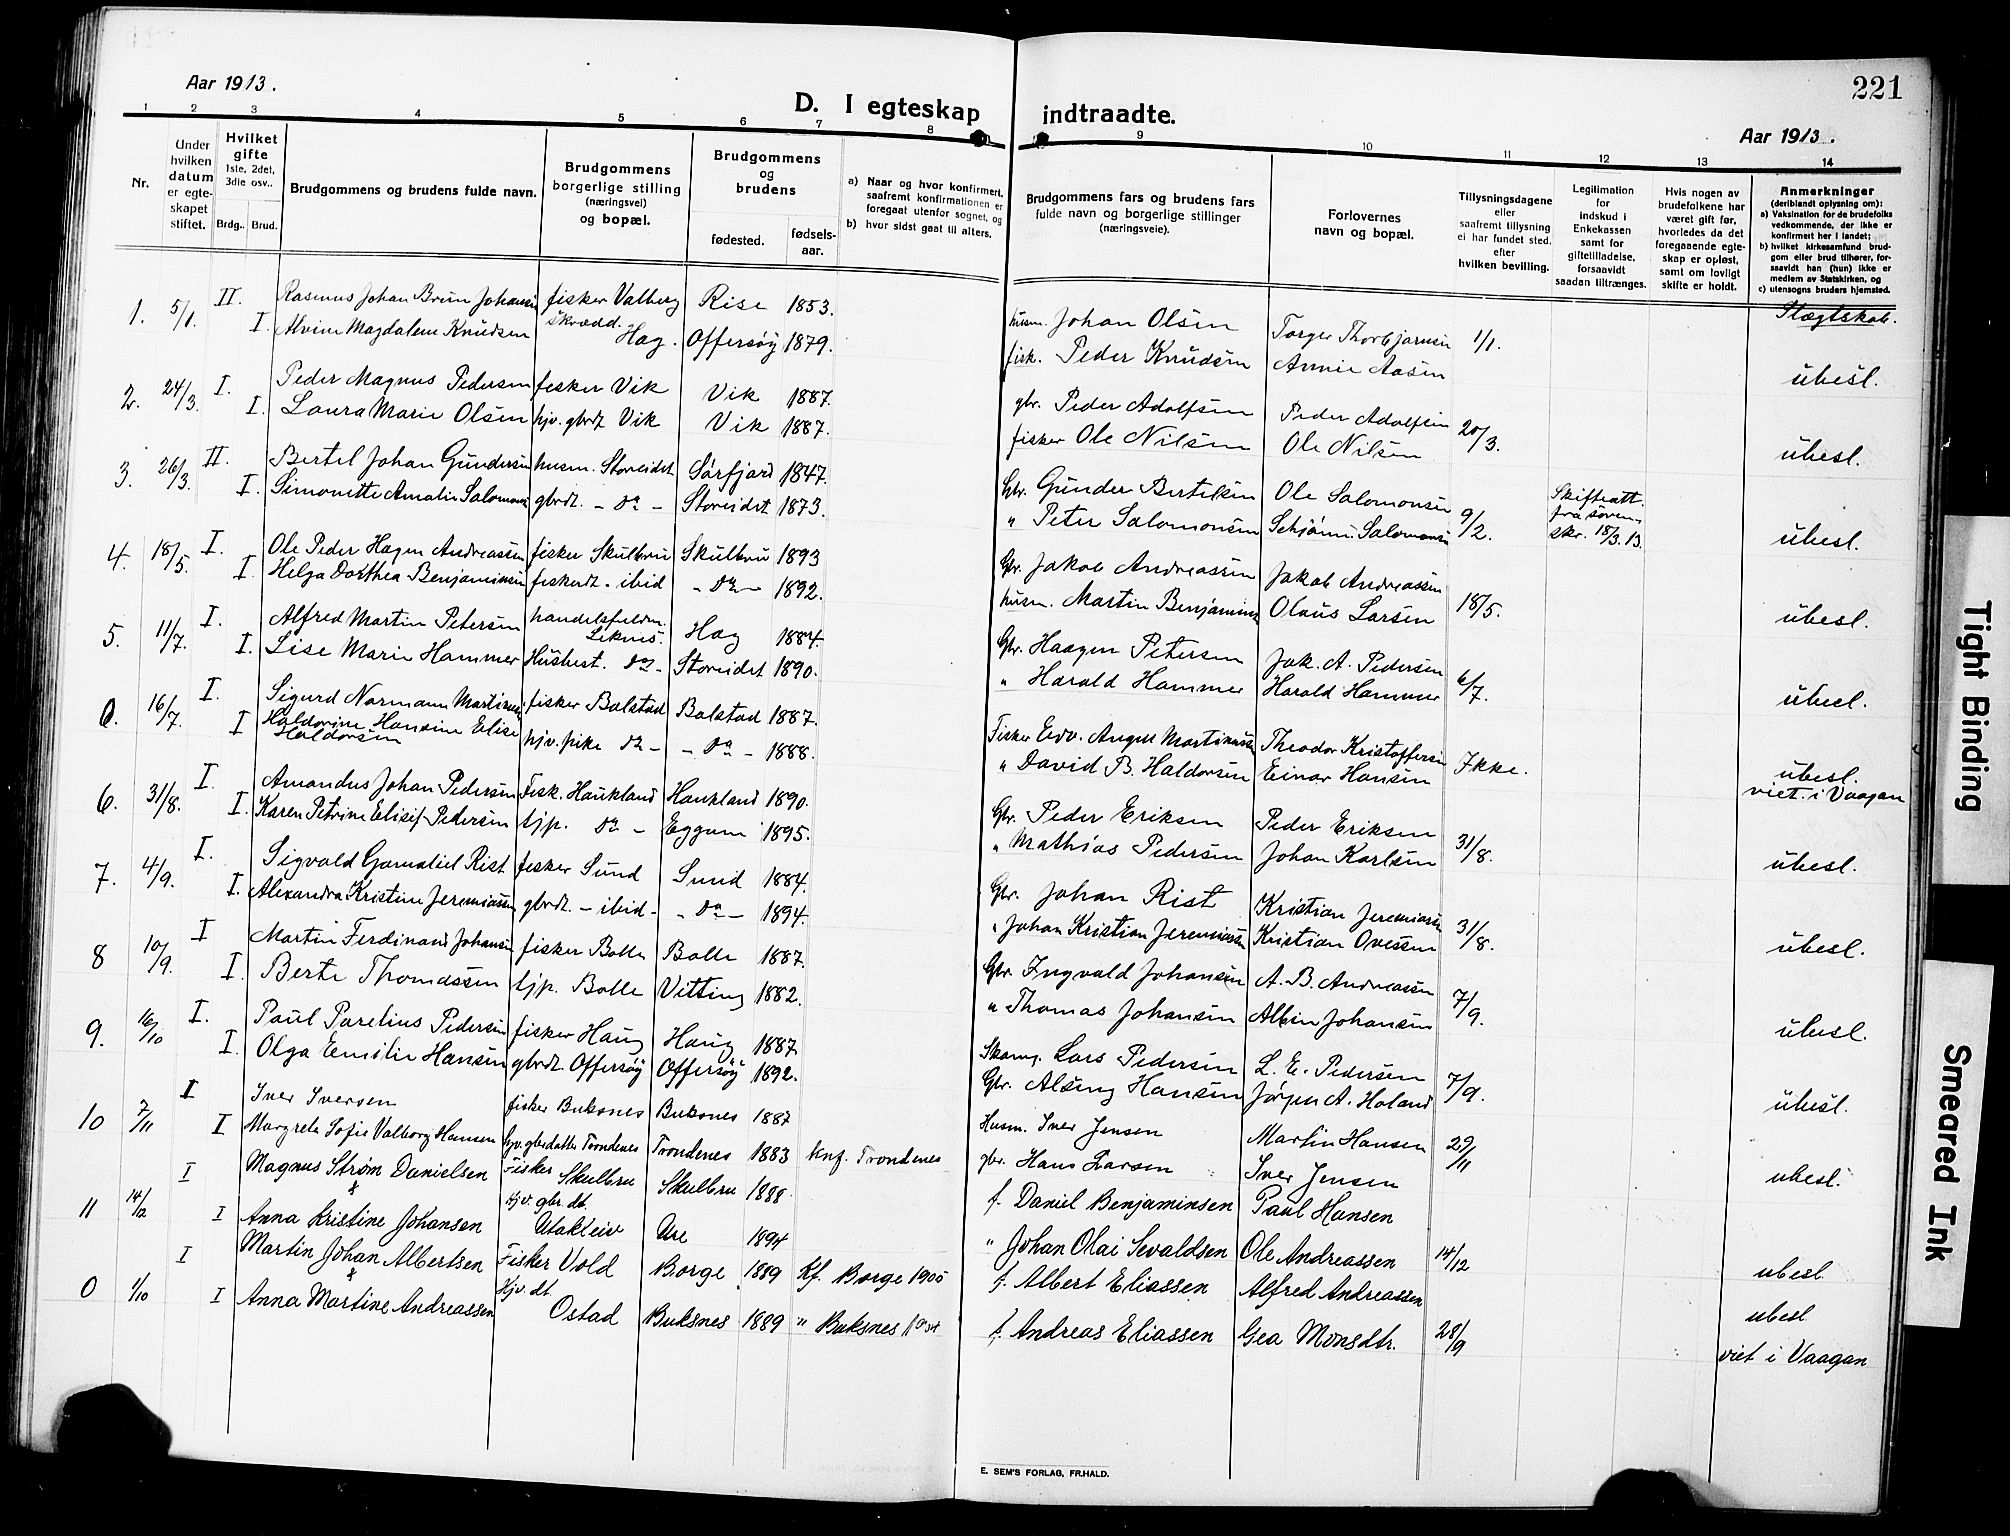 221
Aar 1913.
D. I egteskap indtraadte.
Aar 1913.
1 2 3 4 5 6 7 8 9 10 11 12 13 14
Nr.
Under
hvilken
datum
er egte-
skapet
stiftet.
Hvilket
gifte
1ste, 2det,
3die osv..
Brdg.. Brud.
Brudgommens og brudens fulde navn.
Brudgommens
borgerlige stilling
(næringsvei)
og bopæl.
Brudgommens
og
brudens
fødested.
fødsels-
aar.
a) Naar og hvor konfirmert,
saafremt konfirmationen er
foregaat utenfor sognet, og
b) hvor sidst gaat til alters.
Brudgommens fars og brudens fars
fulde navn og borgerlige stillinger
(næringsveie).
Forlovernes
navn og bopæl.
Tillysningsdagene
eller
saafremt tillysning
ei har fundet sted,
efter
hvilken bevilling.
Legitimation
for
indskud i
Enkekassen
samt for
giftetilladelse,
forsaavidt
saadan tiltrænges.
Hvis nogen av
brudefolkene har
været gift før,
hvorledes da det
foregaaende egte-
skap er opløst,
samt om lovligt
skifte er holdt.
Anmerkninger
(deriblandt oplysning om):
a) Vaksination for de brudefolks
vedkommende, der ikke er
konfirmert her i landet;
b) hvilket kirkesamfund brud-
gom eller brud tilhører, for-
saavidt han (hun) ikke er
medlem av Statskirken, og
c) utensogns bruders hjemsted.
Slægtskab.
1. 5/1. II. Rasmus Johan Brun Johansen fisker Valberg Rise 1853. husm. Johan Olsen Torger Thorbjørnsen 1/1.
I. Alvine Magdalene Knudsen skrædd. Hag. Offersøy 1879. fisk. Peder Knudsen Annie Aasen ubesl.
2. 24/3. I. Peder Magnus Pedersen fisker Vik Vik 1887. gbr. Peder Adolfsen Peder Adolfsen 20/3.
I. Laura Marie Olsen hjv. gbrdt Vik Vik 1887. fisker Ole Nilsen Ole Nilsen ubesl.
3. 26/3. II. Bertel Johan Gundersen husm. Storeidet Sørfjord 1847. Gbr. Gunder Bertelsen Ole Salomonsen 9/2. Skifteatt. fra soren- skr. 18/3. 13.
I. Simonette Amalie Salomonsen gbrdt. - Do - Storeidet 1873. " Peter Salomonsen Schjønn. Salomonsen ubesl.
4. 18/5. I. Ole Peder Hagen Andreassen fisker Skulbru Skulbru 1893 Gbr. Jakob Andreassen Jakob Andreassen 18/5.
I. Helga Dorthea Benjaminsen fiskerdt. - ibid - Do - 1892. husm. Martin Benjaminsen Olaus Larsen ubesl.
5. 11/7. I. Alfred Martin Petersen handelsfuldm. Leknes. Hag 1884. Gbr. Haagen Petersen Jak. A. Pedersen 6/7.
I. Lise Marie Hammer Husbest. Do - Storeidet 1890. " Harald Hammer Harald Hammer ubesl.
0. 16/7. I. Sigurd Normann Martinusen fisker Balstad Balstad 1887. Fisker Edv. Angell Martinussen Theodor Kristoffersen Ikke.
I Haldorine Hansine Elise Haldorsen hjv. pike Do - - Do - 1888. " David B. Haldorsen Einar Hansen ubesl. viet. i Vaagan
6. 31/8. I. Amandus Johan Pedersen Fisk. Haukland Haukland 1890. Gbr. Peder Eriksen Peder Eriksen 31/8.
I. Karen Petrine Elisif Pedersen tjp. Do - Eggum 1895. " Mathias Pedersen Johan Karlsen ubesl.
7. 4/9. I. Sigvald Gamaliel Rist fisker Sund Sund 1884. Gbr. Johan Rist Kristian Jeremiassen 31/8.
I. Alexandra Kristine Jeremiassen gbrdt. - ibid - - Do - 1894. " Johan Kristian Jeremiassen Kristian Ovesen ubesl.
8 10/9. I Martin Ferdinand Johansen fisker Bolle Bolle 1887. Gbr. Ingvald Johansen A. B. Andreassen 7/9.
I. Berte Thomassen tjp. Bolle Vitting 1882. " Thomas Johansen Albin Johansen ubesl.
9. 16/10 I. Paul Parelius Pedersen fisker Haug Haug 1887. Lars Pedersen L. E. Pedersen 7/9.
I. Olga Emilie Hansen gbrdt. Offersøy Offersøy 1892. Gbr. Alsing Hansen Jørgen A. Holand ubesl.
10 7/11 I Iver Iversen fisker Buksnes Buksnes 1887 Husm. Iver Jensen Martin Hansen 29/11
I Margrete Sofie Valborg Hansen hjv. gbrdatter Trondenes Trondenes 1883 Knf. Trondenes gbr. Hans Larsen Iver Jensen ubesl.
11 14/12 I Magnus Strøm Danielsen & Fisker Skulbru Skulbru 1888. f. Daniel Benjaminsen Paul Hansen
I Anna Kristine Johansen hjv. gbr. dt. Utakleiv Ure 1894 " Johan Olai Sevaldsen Ole Andreassen 14/12 ubesl
0 1/10 I Martin Johan Albertsen & Fisker Vold Borge 1889 Kf. Borge 1905 f. Albert Eliassen Alfred Andreassen ubesl
I Anna Martine Andreassen Hjv. dt Ostad Buksnes 1889 " Buksnes 1904 f. Andreas Eliassen Gea Monsdtr. 28/9 viet i Vaagan
E. SEM'S FORLAG, FR.HALD.
Tight Binding
Smeared Ink